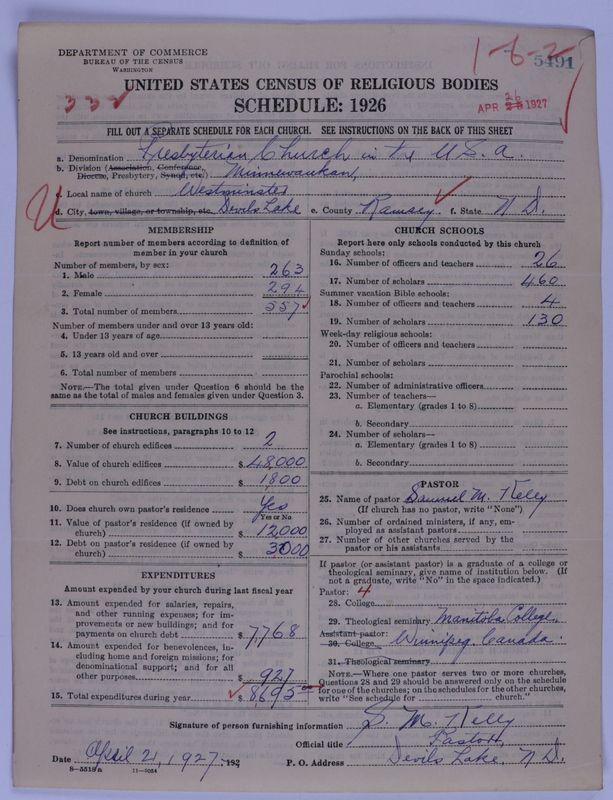 DEPARTMENT OF COMMERCE
BUREAU OF THE CENSUS
WASHINGTON
5491
UNITED STATES CENSUS OF RELIGIOUS BODIES
SCHEDULE: 1926
APR 26 1927
FILL OUT A SEPARATE SCHEDULE FOR EACH CHURCH. SEE INSTRUCTIONS ON THE BACK OF THIS SHEET
a. Denomination Presbyterian Church in the U.S.A.
b. Division (Association, Conference, Diocese, Presbytery, Synod, etc.) Minnewaukan,
c. Local name of church Westminster
d. City, town, village, or township, etc. Devils Lake e. County Ramsey f. State N D.
MEMBERSHIP
Report number of members according to definition of
member in your church
Number of members, by sex:
1. Male 263
2. Female 294
3. Total number of members 557
Number of members under and over 13 years old:
4. Under 13 years of age
5. 13 years old and over
6. Total number of members
NOTE.—The total given under Question 6 should be the
same as the total of males and females given under Question 3.
CHURCH BUILDINGS
See instructions, paragraphs 10 to 12
7. Number of church edifices 2
8. Value of church edifices $ 48,000
9. Debt on church edifices $ 1800
10. Does church own pastor's residence Yes
Yes or No
11. Value of pastor's residence (if owned by
church) $ 12000
12. Debt on pastor's residence (if owned by
church) $ 3000
EXPENDITURES
Amount expended by your church during last fiscal year
13. Amount expended for salaries, repairs,
and other running expenses; for im-
provements or new buildings; and for
payments on church debt $ 7768
14. Amount expended for benevolences, in-
cluding home and foreign missions; for
denominational support; and for all
other purposes $ 927
15. Total expenditures during year $ 8695
CHURCH SCHOOLS
Report here only schools conducted by this church
Sunday schools:
16. Number of officers and teachers 26
17. Number of scholars 460
Summer vacation Bible schools:
18. Number of officers and teachers 4
19. Number of scholars 130
Week-day religious schools:
20. Number of officers and teachers
21. Number of scholars
Parochial schools:
22. Number of administrative officers
23. Number of teachers—
a. Elementary (grades 1 to 8)
b. Secondary
24. Number of scholars—
a. Elementary (grades 1 to 8)
b. Secondary
PASTOR
25. Name of pastor Samuel M. Kelly
(If church has no pastor, write "None")
26. Number of ordained ministers, if any, em-
ployed as assistant pastors
27. Number of other churches served by the
pastor or his assistants
If pastor (or assistant pastor) is a graduate of a college or
theological seminary, give name of institution below. (If
not a graduate, write "No" in the space indicated.)
Pastor: 4
28. College
29. Theological seminary Manitoba College
Assistant pastor:
30. College Winnipeg, Canada.
31. Theological seminary
NOTE.—Where one pastor serves two or more churches,
Questions 28 and 29 should be answered only on the schedule
for one of the churches; on the schedules for the other churches,
write "See schedule for church."
Signature of person furnishing information S. M. Kelly
Official title Pastor,
Date April 21, 1927. 192
P. O. Address Devils Lake, N.D.
8—5518a 11—8034